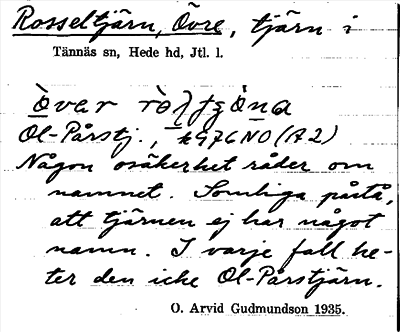 Rosseltjärn, Övre, tjärn i
Tännäs sn, Hede hd, Jtl. l.
Ol-Pårstj., k976NO (A2)
Någon osäkerhet råder om
namnet. Somliga påstå,
att tjärnen ej har något
namn. I varje fall he-
ter den icke Ol-Pårstjärn.
O. Arvid Gudmundson 1935.